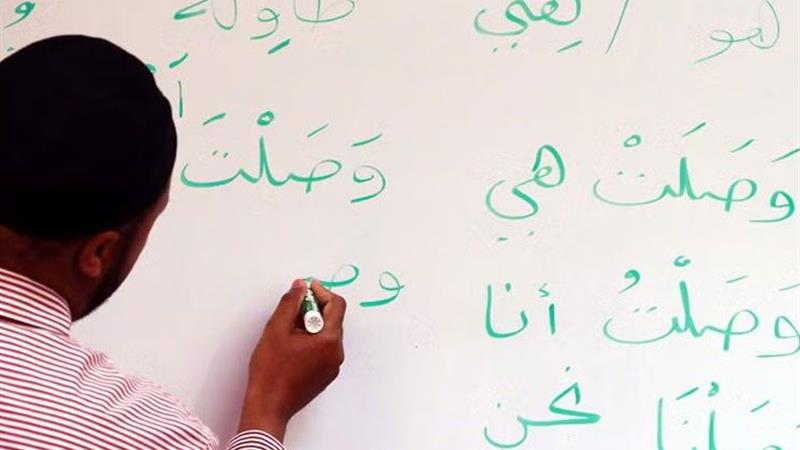 هو / هِيَ طَاوِلَة
وَصَلَتْ هي وَصَلْتَ
وَصَلْتُ أنا وصـ
وَصَلْنَا نحن